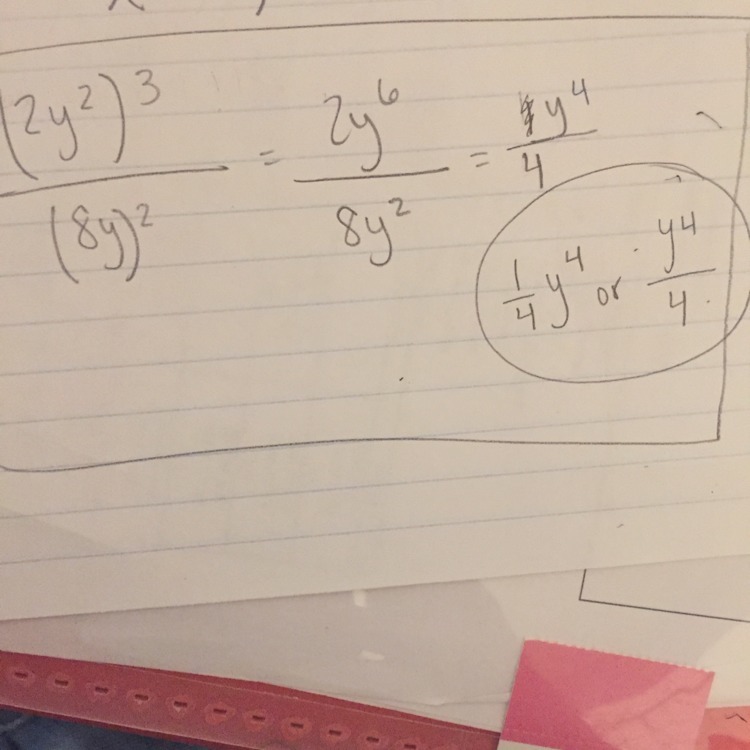 (2y²)³ / (8y)² = 2y⁶ / 8y² = 1y⁴ / 4
1/4 y⁴ or y⁴/4